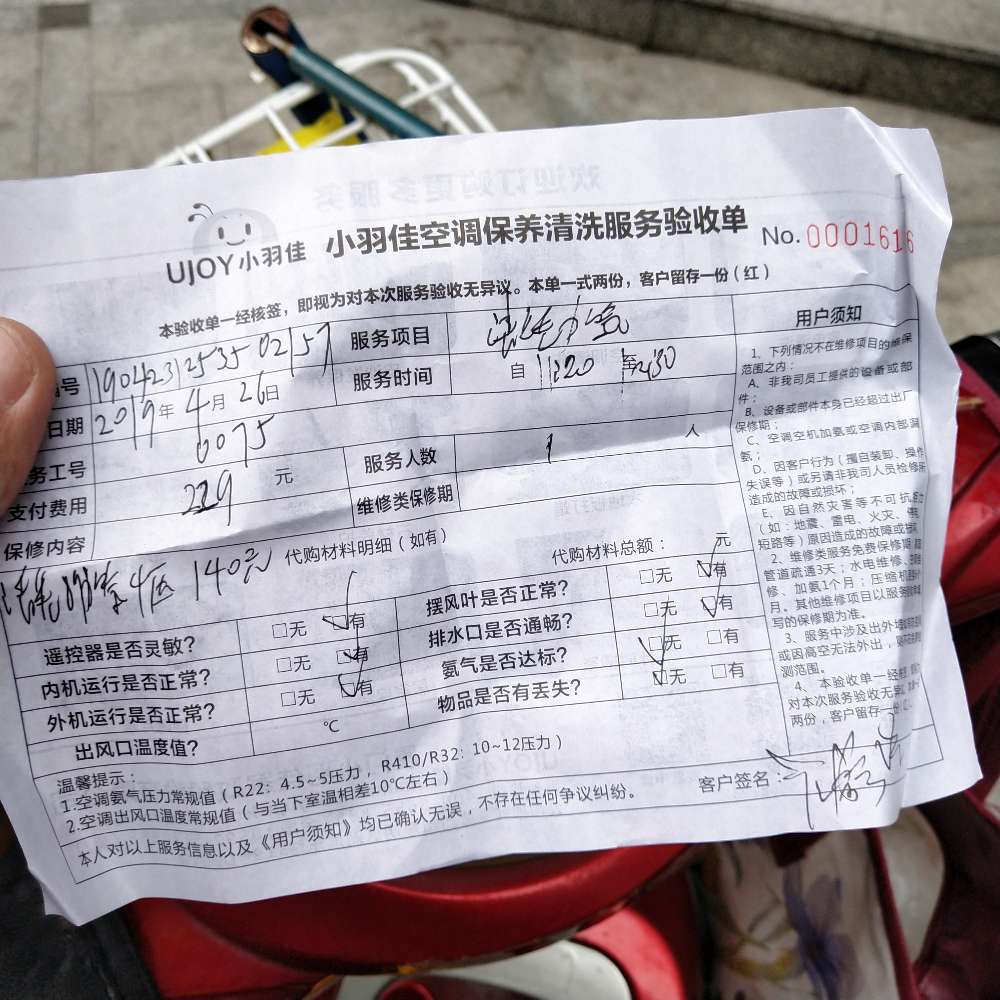 UJOY小羽佳 小羽佳空调保养清洗服务验收单 No. 0001616
本验收单一经核签，即视为对本次服务验收无异议。本单一式两份，客户留存一份（红）
号 服务项目
日期 2019年4月26日 服务时间 自 11:20 至
务工号 0075 服务人数 1 人
支付费用 229 元 维修类保修期
保修内容
140元 代购材料明细（如有） 代购材料总额： 元
遥控器是否灵敏？ □无 □有 摆风叶是否正常？ □无 □有
内机运行是否正常？ □无 □有 排水口是否通畅？ □无 □有
外机运行是否正常？ □无 □有 氨气是否达标？ □无 □有
出风口温度值？ ℃ 物品是否有丢失？ □无 □有
温馨提示：
1.空调氨气压力常规值（R22：4.5~5压力，R410/R32：10~12压力）
2.空调出风口温度常规值（与当下室温相差10℃左右）
本人对以上服务信息以及《用户须知》均已确认无误，不存在任何争议纠纷。
客户签名：
用户须知
1、下列情况不在维修项目的维保
范围之内：
A、非我司员工提供的设备或部
件；
B、设备或部件本身已经超过出厂
保修期；
C、空调空机加氨或空调内部漏
氨；
D、因客户行为（擅自装卸、操作
失误等）或另请非我司人员检修所
造成的故障或损坏；
E、因自然灾害等不可抗
（如：地震、雷电、火灾、
短路等）原因造成的故障或
2、维修类服务免费保修期：
管道疏通3天；水电维修、
修、加氨1个月；压缩机
月。其他维修项目以服务
写的保修期为准。
3、服务中涉及出外
或因高空无法外出，
测范围。
4、本验收单一经
对本次服务验收无异
两份，客户留存一